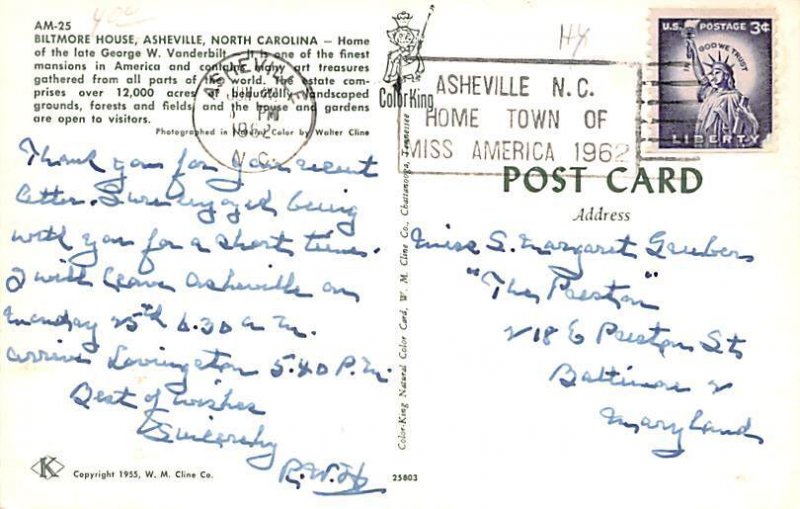 AM-25
BILTMORE HOUSE, ASHEVILLE, NORTH CAROLINA — Home
of the late George W. Vanderbilt. It is one of the finest
mansions in America and contains many art treasures
gathered from all parts of the world. The estate com-
prises over 12,000 acres of beautifully landscaped
grounds, forests and fields and the house and gardens
are open to visitors.
Photographed in Natural Color by Walter Cline
Thank you for your recent
letter. I will enjoy being
with you for a short time.
I will leave Asheville on
Monday 25th 6.30 a m.
arrive Lovingston 5.40 P.M.
Best of wishes
Sincerely
R.W.
Copyright 1955, W. M. Cline Co.
25803
Color-King Natural Color Card, W. M. Cline Co., Chattanooga, Tennessee
Color King
ASHEVILLE
PM
1962
N.C.
ASHEVILLE N.C.
HOME TOWN OF
MISS AMERICA 1962
U.S. POSTAGE 3¢
IN GOD WE TRUST
LIBERTY
POST CARD
Address
Miss S. Margaret
"The Preston"
218 E Preston St
Baltimore 2
Maryland